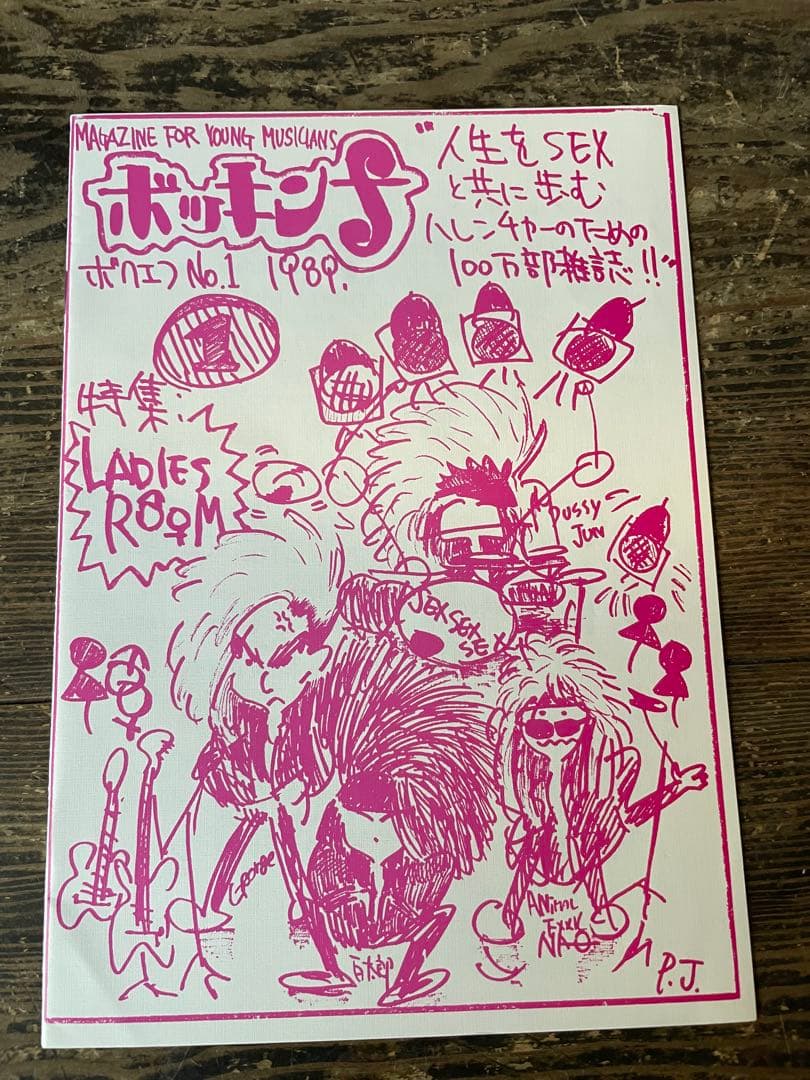 MAGAZINE FOR YOUNG MUSICIANS
ボッキンf
ボクエフ No.1 1989.
"人生をSEX
と共に歩む
ハレンチャーのための
100万部雑誌!!"
1
特集:
LADIES
ROOM
PUSSY
JUN
SEX SEX
SEX
George
百太郎
ANimal
NAO
P.J.